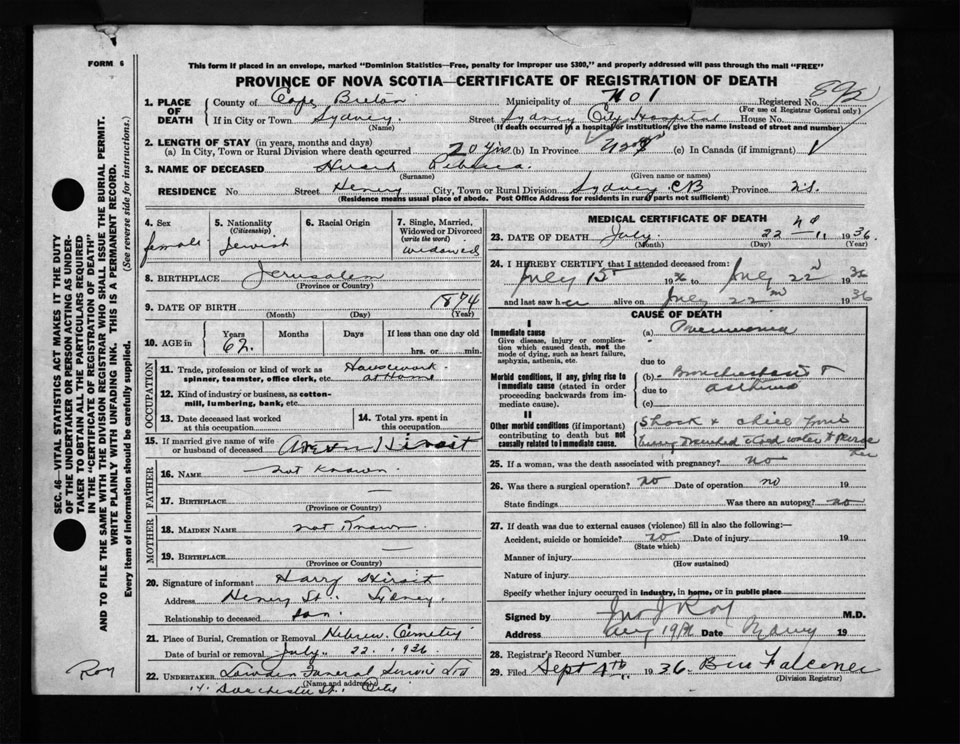 FORM 6
This form if placed in an envelope, marked "Dominion Statistics—Free, penalty for improper use $300," and properly addressed will pass through the mail "FREE"
PROVINCE OF NOVA SCOTIA—CERTIFICATE OF REGISTRATION OF DEATH
1. PLACE OF DEATH
County of Cape Breton Municipality of No 1 Registered No.
(For use of Registrar General only)
If in City or Town Sydney. Street Sydney City Hospital House No.
(Name) (If death occurred in a hospital or institution, give the name instead of street and number)
2. LENGTH OF STAY (in years, months and days)
(a) In City, Town or Rural Division where death occurred 20 yrs (b) In Province (c) In Canada (if immigrant)
3. NAME OF DECEASED Rebecca
(Surname) (Given name or names)
RESIDENCE No Street Henry City, Town or Rural Division Sydney CB Province N.S.
(Residence means usual place of abode. Post Office Address for residents in rural parts not sufficient)
4. Sex female
5. Nationality (Citizenship) Jewish
6. Racial Origin
7. Single, Married, Widowed or Divorced (write the word) widowed
8. BIRTHPLACE Jerusalem
(Province or Country)
9. DATE OF BIRTH 1874
(Month) (Day) (Year)
10. AGE in Years 62. Months Days If less than one day old
hrs. or min.
OCCUPATION
11. Trade, profession or kind of work as spinner, teamster, office clerk, etc. Housework at Home
12. Kind of industry or business, as cotton-mill, lumbering, bank, etc.
13. Date deceased last worked at this occupation
14. Total yrs. spent in this occupation
15. If married give name of wife or husband of deceased
FATHER
16. NAME not known
17. BIRTHPLACE —
(Province or Country)
MOTHER
18. MAIDEN NAME not known
19. BIRTHPLACE —
(Province or Country)
20. Signature of informant Harry
Address Henry St. Sydney.
Relationship to deceased son.
21. Place of Burial, Cremation or Removal Hebrew Cemetery
Date of burial or removal July 22 1936
22. UNDERTAKER Funeral Service Ltd
(Name and address)
Dorchester St. City
MEDICAL CERTIFICATE OF DEATH
23. DATE OF DEATH July 22 1936
(Month) (Day) (Year)
24. I HEREBY CERTIFY that I attended deceased from:
July 1936 to July 22nd 1936
and last saw her alive on July 22nd 1936
CAUSE OF DEATH
I
Immediate cause
Give disease, injury or complication which caused death, not the mode of dying, such as heart failure, asphyxia, asthenia, etc.
(a) Pneumonia
due to
Morbid conditions, if any, giving rise to immediate cause (stated in order proceeding backwards from immediate cause).
(b)
due to asthma
(c)
II
Other morbid conditions (if important) contributing to death but not causally related to immediate cause.
Shock & chill from
being drenched
25. If a woman, was the death associated with pregnancy? no
26. Was there a surgical operation? no Date of operation no 19
State findings Was there an autopsy? no
27. If death was due to external causes (violence) fill in also the following:—
Accident, suicide or homicide? no Date of injury 19
(State which)
Manner of injury
(How sustained)
Nature of injury
Specify whether injury occurred in industry, in home, or in public place
Signed by Jno J Roy M.D.
Address Date 19
28. Registrar's Record Number
29. Filed Sept 4th 1936 Falconer
(Division Registrar)
Roy
SEC. 46—VITAL STATISTICS ACT MAKES IT THE DUTY
OF THE UNDERTAKER OR PERSON ACTING AS UNDER-
TAKER TO OBTAIN ALL THE PARTICULARS REQUIRED
IN THE "CERTIFICATE OF REGISTRATION OF DEATH"
AND TO FILE THE SAME WITH THE DIVISION REGISTRAR WHO SHALL ISSUE THE BURIAL PERMIT.
WRITE PLAINLY WITH UNFADING INK. THIS IS A PERMANENT RECORD.
Every item of information should be carefully supplied. (See reverse side for instructions.)